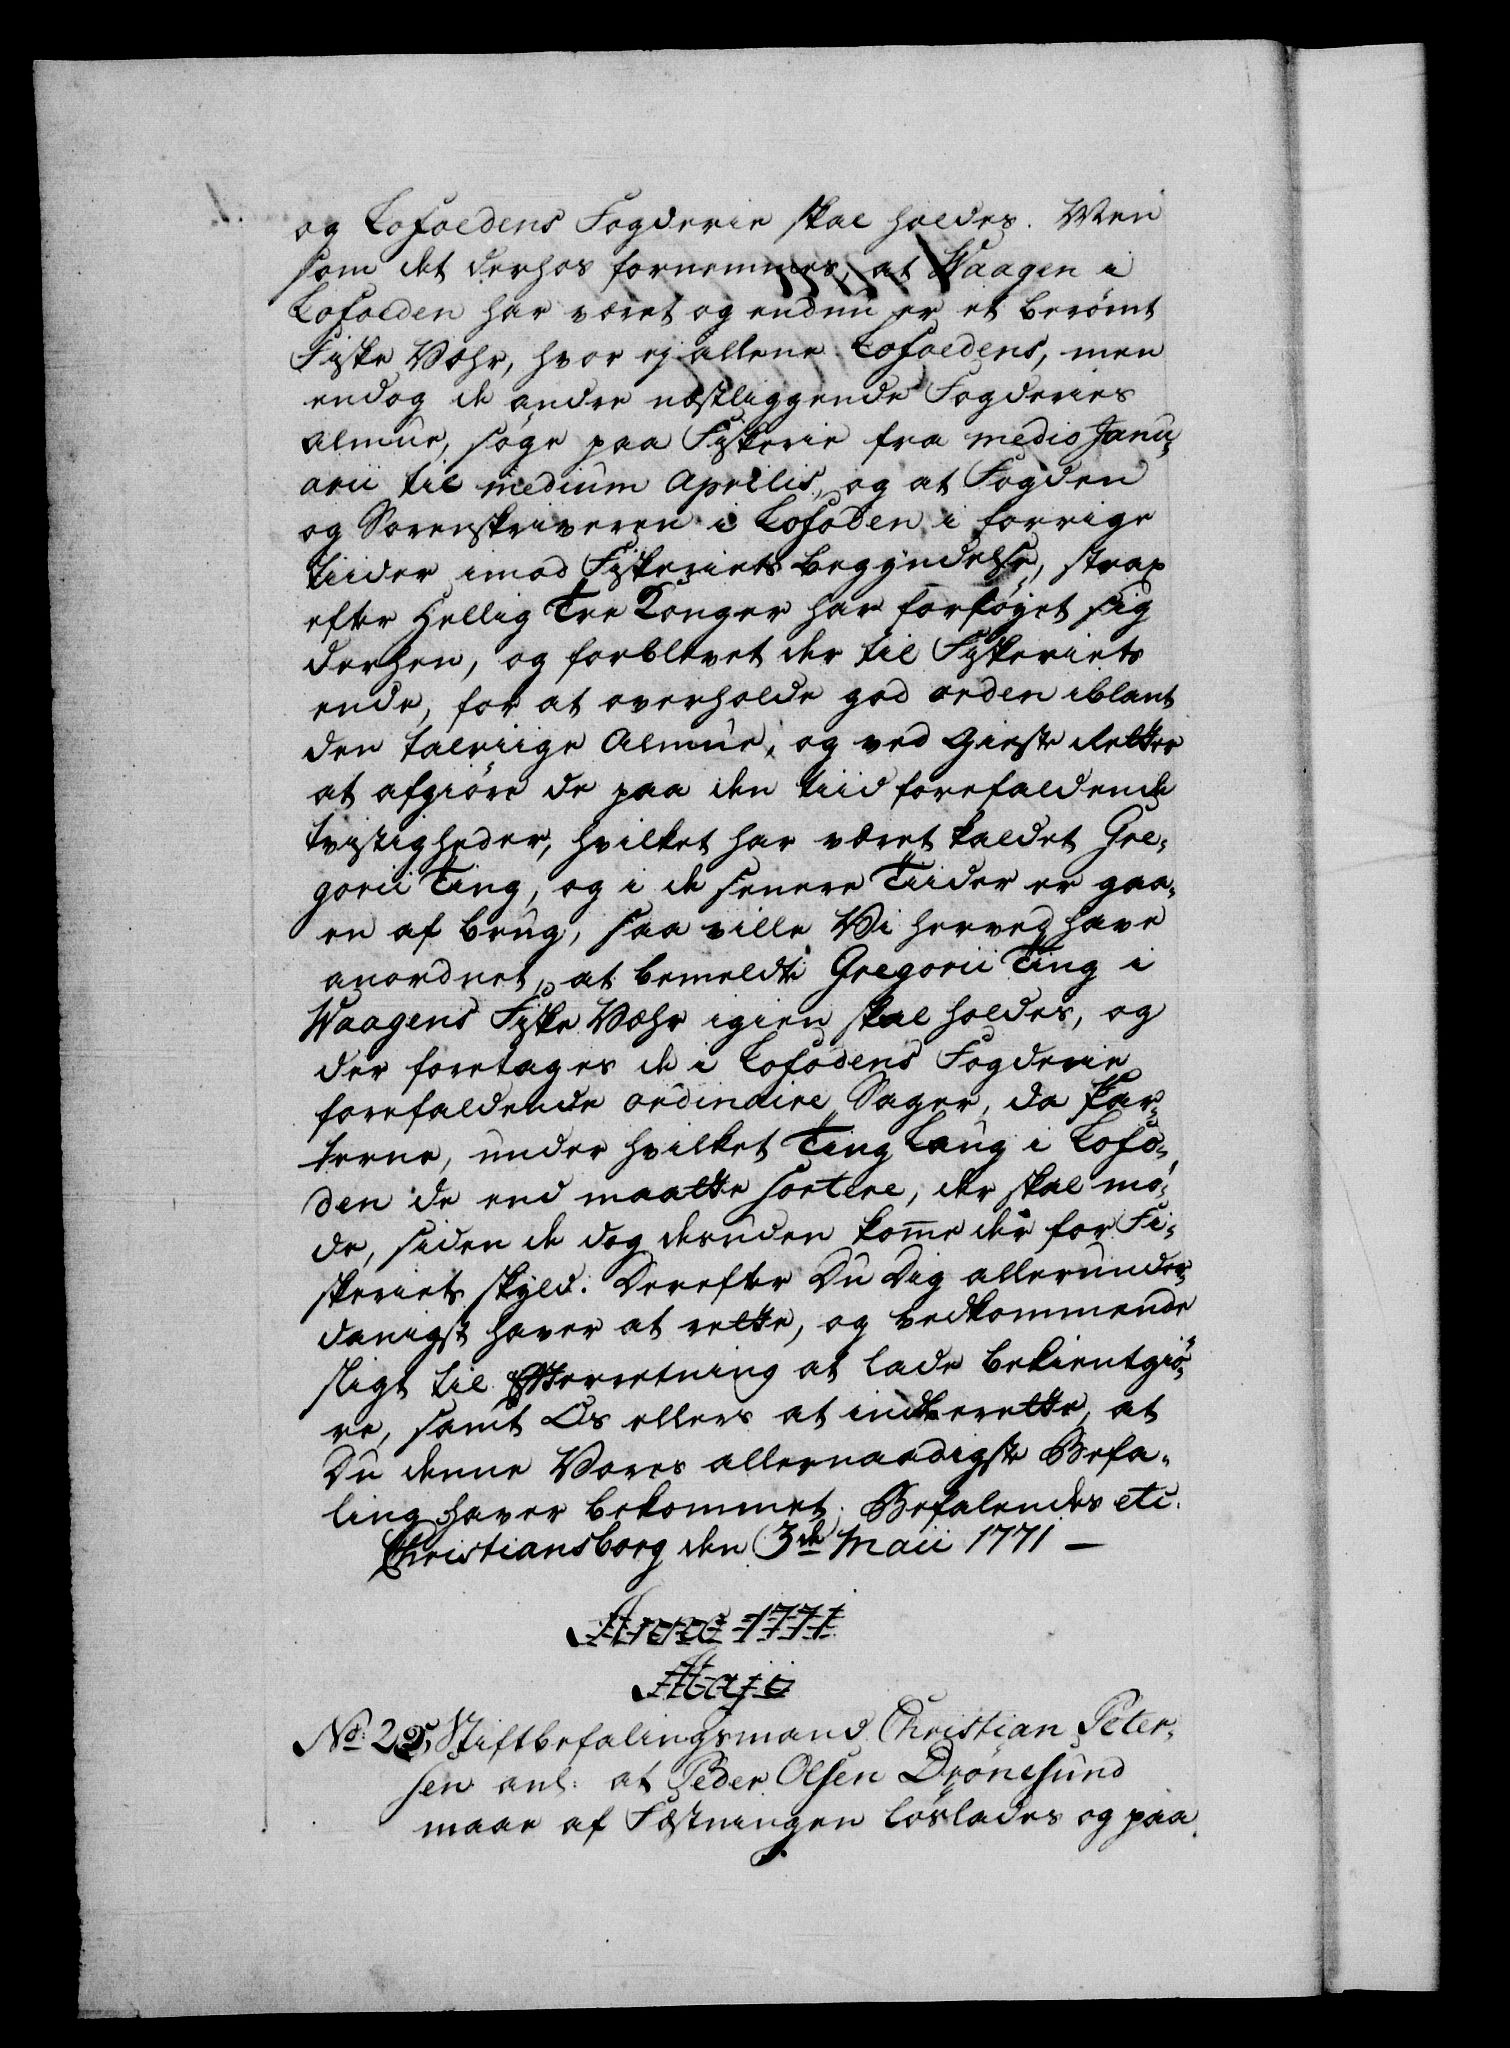 og Lofoedens Fogderie skal holdes. Men
som det derhos fornemmes, at Waagen i
Lofoeden har været og endnu er et berømt
Fiske Vähr, hvor ej allene Lofoedens, men
endog de andre næstliggende Fogderies
Almue, søge paa Fiskerie fra medio Janu-
arii til medium Aprilis, og at Fogden
og Sorenskriveren i Lofoden i forrige
tiider imod Fiskeriets begyndelse, strax
efter Hellig Tre Konger har forføyet sig
derhen, og forblevet der til Fiskeriets
ende, for at overholde god orden iblant
den talriige Almue, og ved Gieste Retter
at afgiøre de paa den tiid forefaldende
tvistigheder, hvilket har været kaldet Gre-
gorii Ting, og i de senere Tiider er gaa-
en af brug, saa ville Vi herved have
anordnet, at bemeldte Gregorii Ting i
Waagens Fiske Vähr igien skal holdes, og
der foretages de i Lofodens Fogderie
forefaldende ordinaire Sager, da Par-
terne, under hvilket Ting Laug i Lofo-
den de end maatte sortere, der skal mø-
de, siden de dog desuden kom̅e der for Fi-
skeriets skyld. Derefter Du Dig allerunder-
danigst haver at rette, og vedkommende
sligt til Efterretning at lade bekientgiø-
re, samt Os ellers at indberette, at
Du denne Vores allernaadigste Befa-
ling haver bekommet. Befalendes etc.
Christiansborg den 3de Maii 1771 —
Anno 1771
Majo
No. 25, Stiftbefalingsmand Christian Peter-
sen anl: at Peder Olsen Drönesund
maae af Fæstningen løslades og paa